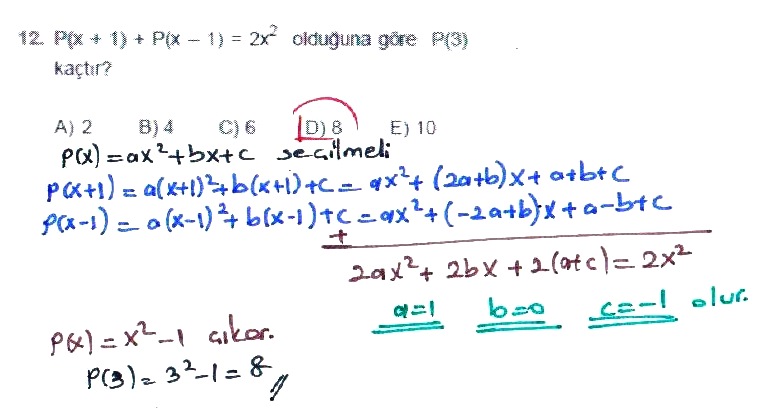 12. P(x + 1) + P(x – 1) = 2x² olduğuna göre P(3)
kaçtır?
A) 2 B) 4 C) 6 D) 8 E) 10
P(x) = ax²+bx+c seçilmeli
P(x+1) = a(x+1)²+b(x+1)+c = ax²+(2a+b)x+a+b+c
P(x-1) = a(x-1)²+b(x-1)+c = ax²+(-2a+b)x+a-b+c
+
2ax²+2bx+2(a+c) = 2x²
a=1 b=0 c=-1 olur.
P(x) = x²-1 çıkar.
P(3) = 3²-1 = 8 //